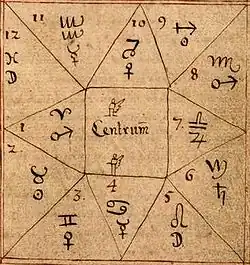 11 ♒ ☿
10 ♑ ♀
9 ♐ ☉
12 ♓ ☽
8 ♏ ♂
1 ♈ ♂
Centrum
7. ♎ ♃
2. ♉ ☉
6 ♍ ♄
3. ♊ ♀
4 ♋ ☿
5 ♌ ☽